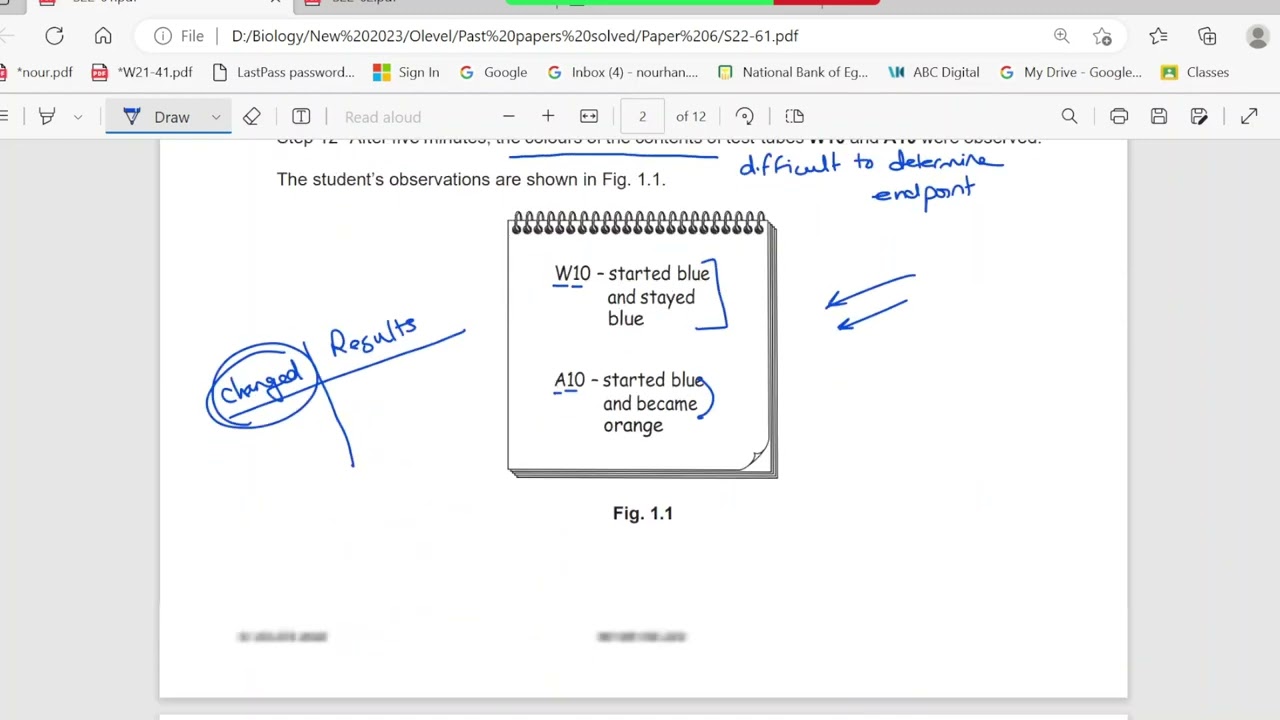 File D:/Biology/New%202023/Olevel/Past%20papers%20solved/Paper%206/S22-61.pdf
*nour.pdf *W21-41.pdf LastPass password... Sign In Google Inbox (4) - nourhan.... National Bank of Eg... ABC Digital My Drive - Google... Classes
Draw Read aloud 2 of 12
Step 12 After five minutes, the colours of the contents of test-tubes W10 and A10 were observed.
difficult to determine
endpoint
The student's observations are shown in Fig. 1.1.
W10 – started blue
and stayed
blue
Results
changed
A10 – started blue
and became
orange
Fig. 1.1